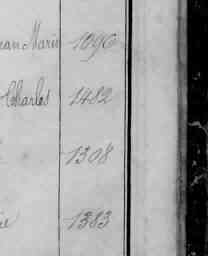 ean Marie 1096
Charles 1482
1308
ie 1383